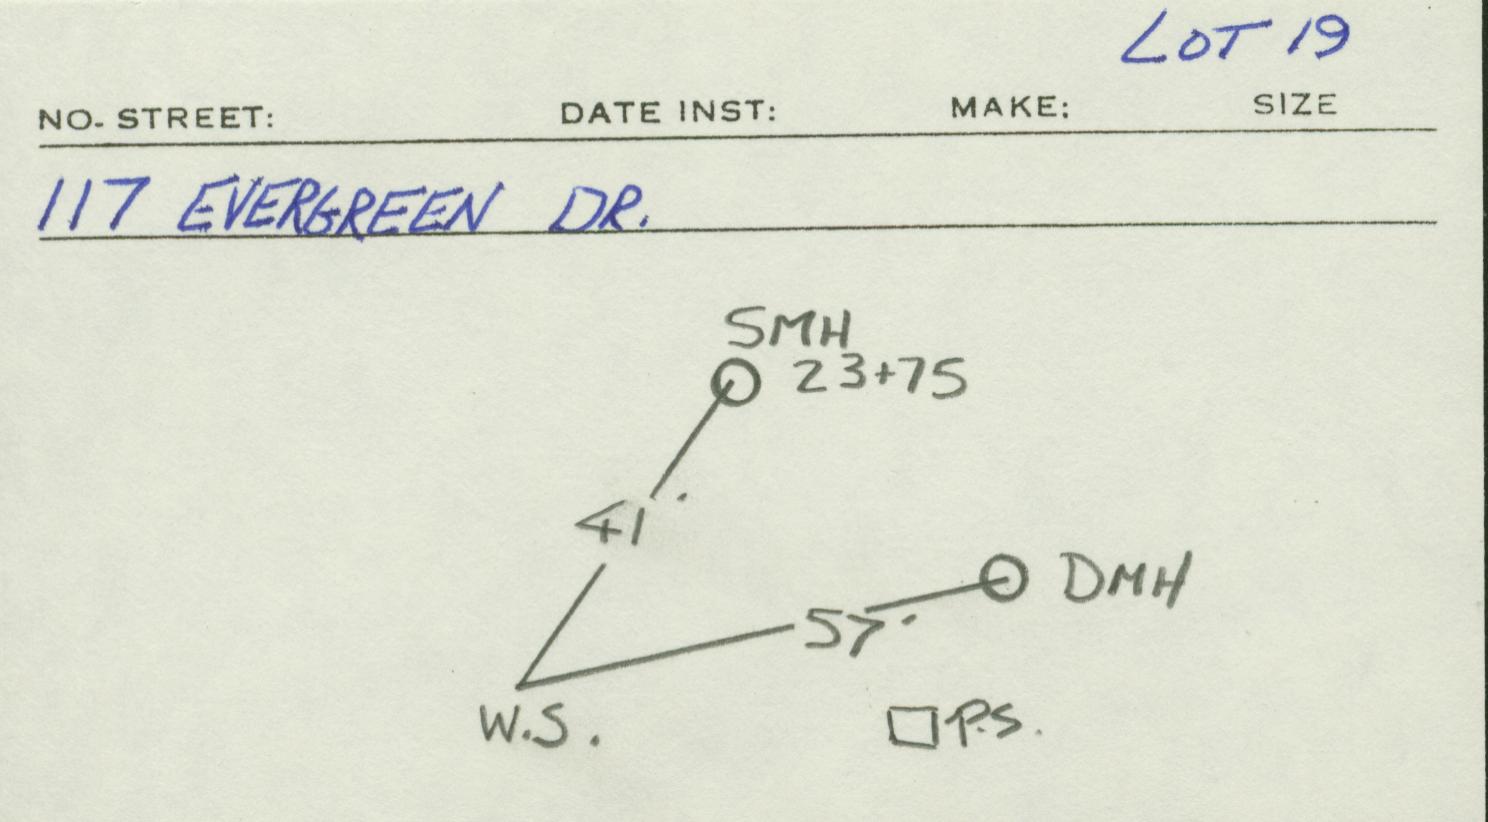 LOT 19
NO. STREET: DATE INST: MAKE: SIZE
117 EVERGREEN DR.
SMH
23+75
41'
57'
DMH
W.S.
P.S.